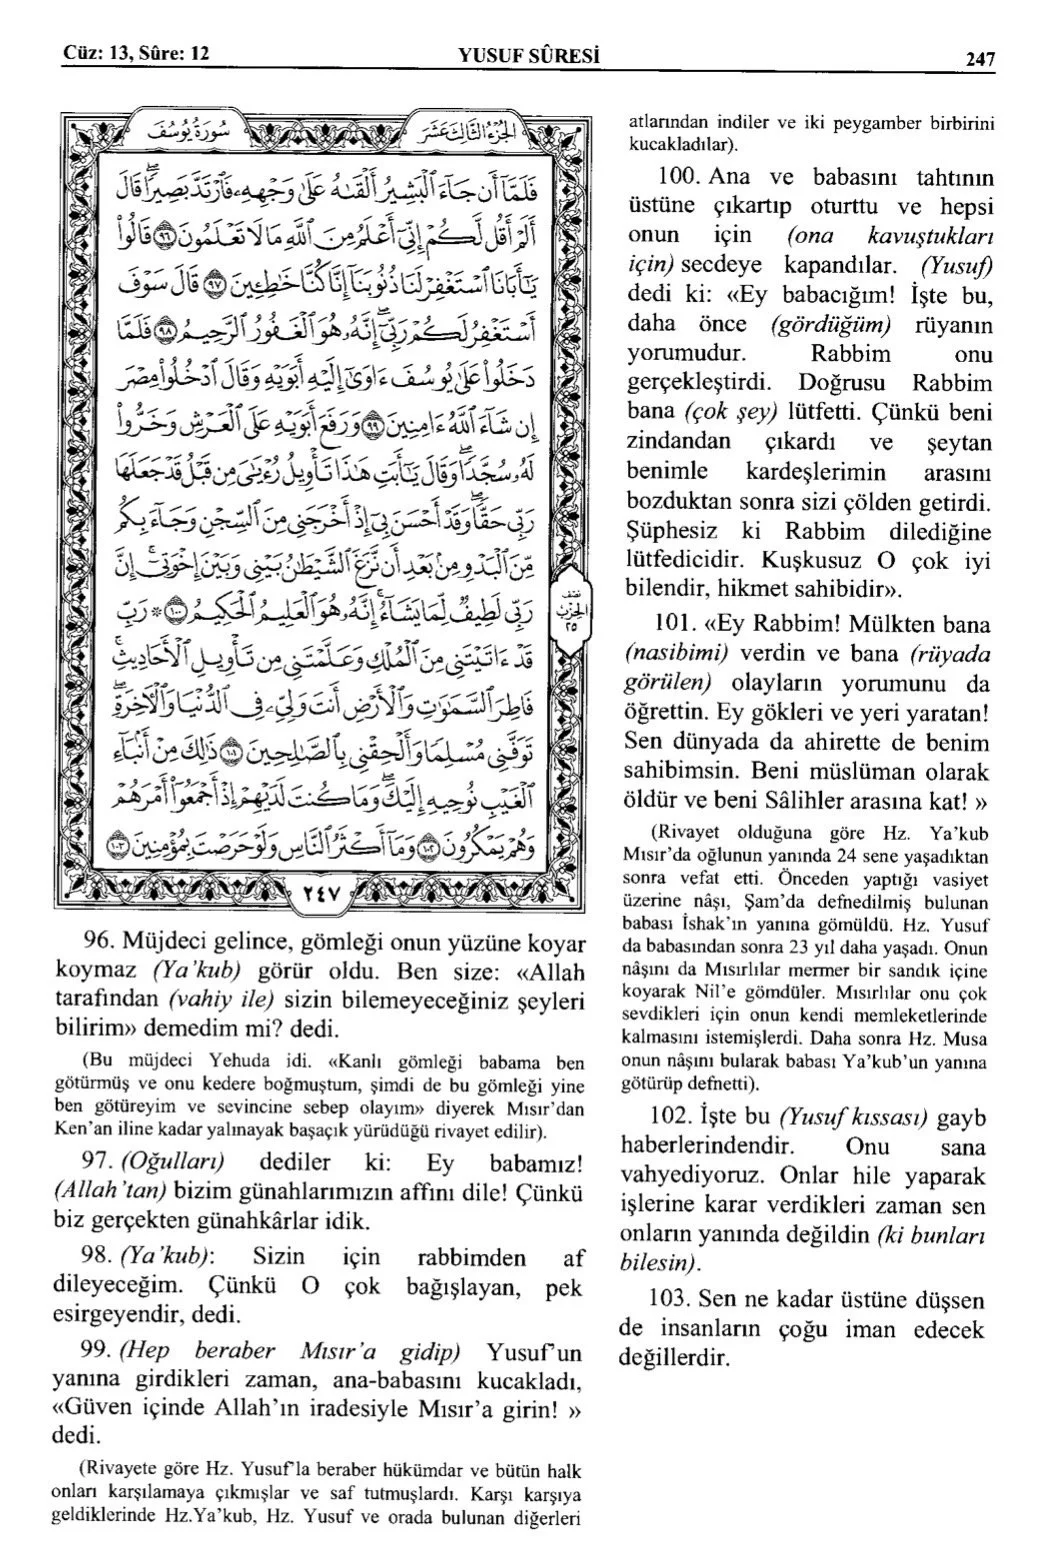 Cüz: 13, Sûre: 12
YUSUF SÛRESİ
247
سُورَةُ يُوسُفَ
الجُزْءُ الثَّالِثَ عَشَرَ
فَلَمَّآ أَن جَآءَ ٱلْبَشِيرُ أَلْقَىٰهُ عَلَىٰ وَجْهِهِۦ فَٱرْتَدَّ بَصِيرًۭاۖ قَالَ
أَلَمْ أَقُل لَّكُمْ إِنِّىٓ أَعْلَمُ مِنَ ٱللَّهِ مَا لَا تَعْلَمُونَ ٩٦ قَالُوا۟
يَٰٓأَبَانَا ٱسْتَغْفِرْ لَنَا ذُنُوبَنَآ إِنَّا كُنَّا خَٰطِـِٔينَ ٩٧ قَالَ سَوْفَ
أَسْتَغْفِرُ لَكُمْ رَبِّىٓۖ إِنَّهُۥ هُوَ ٱلْغَفُورُ ٱلرَّحِيمُ ٩٨ فَلَمَّا
دَخَلُوا۟ عَلَىٰ يُوسُفَ ءَاوَىٰٓ إِلَيْهِ أَبَوَيْهِ وَقَالَ ٱدْخُلُوا۟ مِصْرَ
إِن شَآءَ ٱللَّهُ ءَامِنِينَ ٩٩ وَرَفَعَ أَبَوَيْهِ عَلَى ٱلْعَرْشِ وَخَرُّوا۟
لَهُۥ سُجَّدًۭاۖ وَقَالَ يَٰٓأَبَتِ هَٰذَا تَأْوِيلُ رُءْيَٰىَ مِن قَبْلُ قَدْ جَعَلَهَا
رَبِّى حَقًّۭاۖ وَقَدْ أَحْسَنَ بِىٓ إِذْ أَخْرَجَنِى مِنَ ٱلسِّجْنِ وَجَآءَ بِكُم
مِّنَ ٱلْبَدْوِ مِنۢ بَعْدِ أَن نَّزَغَ ٱلشَّيْطَٰنُ بَيْنِى وَبَيْنَ إِخْوَتِىٓۚ إِنَّ
رَبِّى لَطِيفٌۭ لِّمَا يَشَآءُۚ إِنَّهُۥ هُوَ ٱلْعَلِيمُ ٱلْحَكِيمُ ١٠٠ * رَبِّ
قَدْ ءَاتَيْتَنِى مِنَ ٱلْمُلْكِ وَعَلَّمْتَنِى مِن تَأْوِيلِ ٱلْأَحَادِيثِۚ
فَاطِرَ ٱلسَّمَٰوَٰتِ وَٱلْأَرْضِ أَنتَ وَلِىِّۦ فِى ٱلدُّنْيَا وَٱلْءَاخِرَةِۖ
تَوَفَّنِى مُسْلِمًۭا وَأَلْحِقْنِى بِٱلصَّٰلِحِينَ ١٠١ ذَٰلِكَ مِنْ أَنۢبَآءِ
ٱلْغَيْبِ نُوحِيهِ إِلَيْكَۖ وَمَا كُنتَ لَدَيْهِمْ إِذْ أَجْمَعُوٓا۟ أَمْرَهُمْ
وَهُمْ يَمْكُرُونَ ١٠٢ وَمَآ أَكْثَرُ ٱلنَّاسِ وَلَوْ حَرَصْتَ بِمُؤْمِنِينَ ١٠٣
نصف
الحزب
٢٥
٢٤٧
96. Müjdeci gelince, gömleği onun yüzüne koyar
koymaz (Ya’kub) görür oldu. Ben size: «Allah
tarafından (vahiy ile) sizin bilemeyeceğiniz şeyleri
bilirim» demedim mi? dedi.
(Bu müjdeci Yehuda idi. «Kanlı gömleği babama ben
götürmüş ve onu kedere boğmuştum, şimdi de bu gömleği yine
ben götüreyim ve sevincine sebep olayım» diyerek Mısır’dan
Ken’an iline kadar yalınayak başaçık yürüdüğü rivayet edilir).
97. (Oğulları) dediler ki: Ey babamız!
(Allah’tan) bizim günahlarımızın affını dile! Çünkü
biz gerçekten günahkârlar idik.
98. (Ya’kub): Sizin için rabbimden af
dileyeceğim. Çünkü O çok bağışlayan, pek
esirgeyendir, dedi.
99. (Hep beraber Mısır’a gidip) Yusuf’un
yanına girdikleri zaman, ana-babasını kucakladı,
«Güven içinde Allah’ın iradesiyle Mısır’a girin! »
dedi.
(Rivayete göre Hz. Yusuf’la beraber hükümdar ve bütün halk
onları karşılamaya çıkmışlar ve saf tutmuşlardı. Karşı karşıya
geldiklerinde Hz.Ya’kub, Hz. Yusuf ve orada bulunan diğerleri
atlarından indiler ve iki peygamber birbirini
kucakladılar).
100. Ana ve babasını tahtının
üstüne çıkartıp oturttu ve hepsi
onun için (ona kavuştukları
için) secdeye kapandılar. (Yusuf)
dedi ki: «Ey babacığım! İşte bu,
daha önce (gördüğüm) rüyanın
yorumudur. Rabbim onu
gerçekleştirdi. Doğrusu Rabbim
bana (çok şey) lütfetti. Çünkü beni
zindandan çıkardı ve şeytan
benimle kardeşlerimin arasını
bozduktan sonra sizi çölden getirdi.
Şüphesiz ki Rabbim dilediğine
lütfedicidir. Kuşkusuz O çok iyi
bilendir, hikmet sahibidir».
101. «Ey Rabbim! Mülkten bana
(nasibimi) verdin ve bana (rüyada
görülen) olayların yorumunu da
öğrettin. Ey gökleri ve yeri yaratan!
Sen dünyada da ahirette de benim
sahibimsin. Beni müslüman olarak
öldür ve beni Sâlihler arasına kat! »
(Rivayet olduğuna göre Hz. Ya’kub
Mısır’da oğlunun yanında 24 sene yaşadıktan
sonra vefat etti. Önceden yaptığı vasiyet
üzerine nâşı, Şam’da defnedilmiş bulunan
babası İshak’ın yanına gömüldü. Hz. Yusuf
da babasından sonra 23 yıl daha yaşadı. Onun
nâşını da Mısırlılar mermer bir sandık içine
koyarak Nil’e gömdüler. Mısırlılar onu çok
sevdikleri için onun kendi memleketlerinde
kalmasını istemişlerdi. Daha sonra Hz. Musa
onun nâşını bularak babası Ya’kub’un yanına
götürüp defnetti).
102. İşte bu (Yusuf kıssası) gayb
haberlerindendir. Onu sana
vahyediyoruz. Onlar hile yaparak
işlerine karar verdikleri zaman sen
onların yanında değildin (ki bunları
bilesin).
103. Sen ne kadar üstüne düşsen
de insanların çoğu iman edecek
değillerdir.